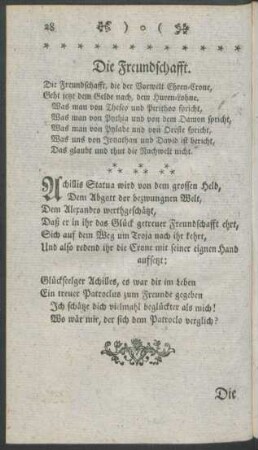 28 ) o (
Die Freundschafft.
Die Freundschafft, die der Vorwelt Ehren-Crone,
Geht jetzt dem Gelde nach, dem Huren-Lohne.
Was man von Theseo und Pirithoo spricht,
Was man von Pythia und von dem Damon spricht,
Was man von Pylade und von Oreste spricht,
Was uns von Jonathan und David ist bericht,
Das glaubt und thut die Nachwelt nicht.
Achillis Statua wird von dem grossen Held,
Dem Abgott der bezwungnen Welt,
Dem Alexandro werthgeschätzt,
Daß er in ihr das Glück getreuer Freundschafft ehrt,
Sich auf dem Weg um Troja nach ihr kehrt,
Und also redend ihr die Crone mit seiner eignen Hand
aufsetzt:
Glückseelger Achilles, es war dir im Leben
Ein treuer Patroclus zum Freunde gegeben
Ich schätze dich vielmahl beglückter als mich!
Wo wär mir, der sich dem Patroclo verglich?
Die